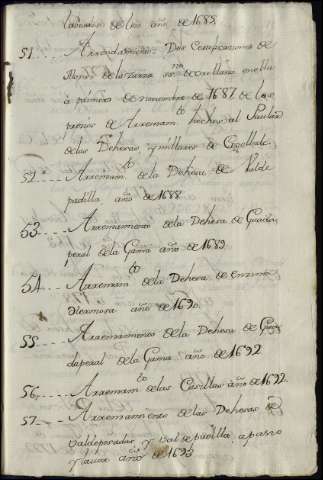 de los año de 1683
51. Arrendamientos Dos Compusiciones de
a primero de noviembre de 1687 de los
precios de Arrendam.to hechos al Paular
de las Dehesas y millares de
52. Arrendam.to de la Dehesa de Valde
padilla año de 1688
53. Arrendamiento de la Dehesa de Guada
peral de la Gama año de 1689
54. Arrendam.to de la Dehesa de enzina
Hermosa año de 1690
55. Arrendamientos de la Dehesa de Gua
daperal de la Gama año de 1692
56. Arrendam.to de las Casillas año de 1692
57. Arrendamientos de las Dehesas de
Valdeposadas y Val de padilla, a pasto
y lavor año de 1693